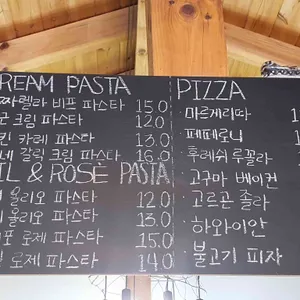 REAM PASTA
짜렐라 비프 파스타 15.0
크림 파스타 12.0
카레 파스타 13.0
갈릭 크림 파스타 16.0
IL & ROSE PASTA
올리오 파스타 12.0
올리오 파스타 13.0
로제 파스타 15.0
로제 파스타 14.0
PIZZA
· 마르게리따
· 페페로니
· 후레쉬 루꼴라
· 고구마 베이컨
· 고르곤 졸라
· 하와이안
· 불고기 피자